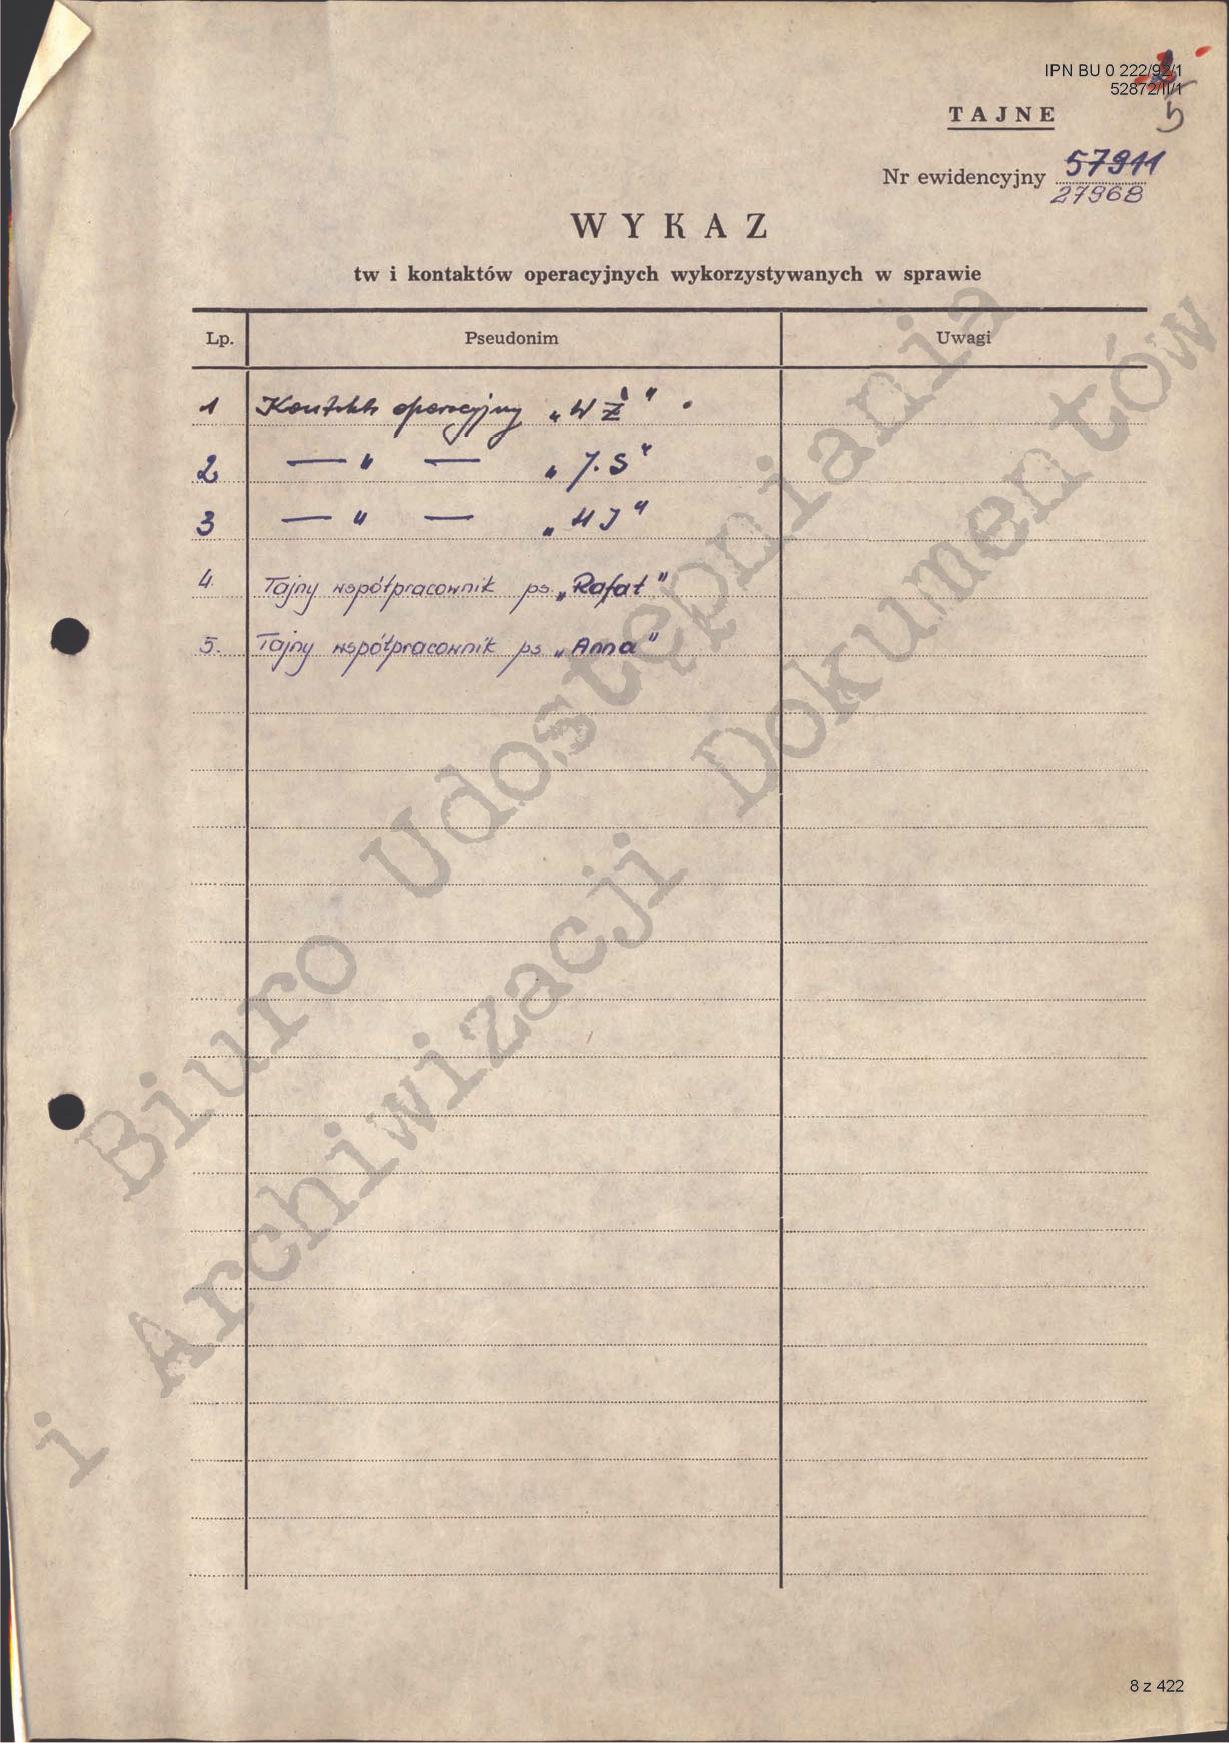 IPN BU 0 222/92/1
52872/II/1
5
TAJNE
Nr ewidencyjny 57911
27968
WYKAZ
tw i kontaktów operacyjnych wykorzystywanych w sprawie
Lp. Pseudonim Uwagi
1 Kontakt operacyjny „W Ż"
2 — " — „J. S"
3 — " — „H J"
4. Tajny współpracownik ps. „Rafał"
5. Tajny współpracownik ps „Anna"
Biuro Udostępniania
i Archiwizacji Dokumentów
8 z 422